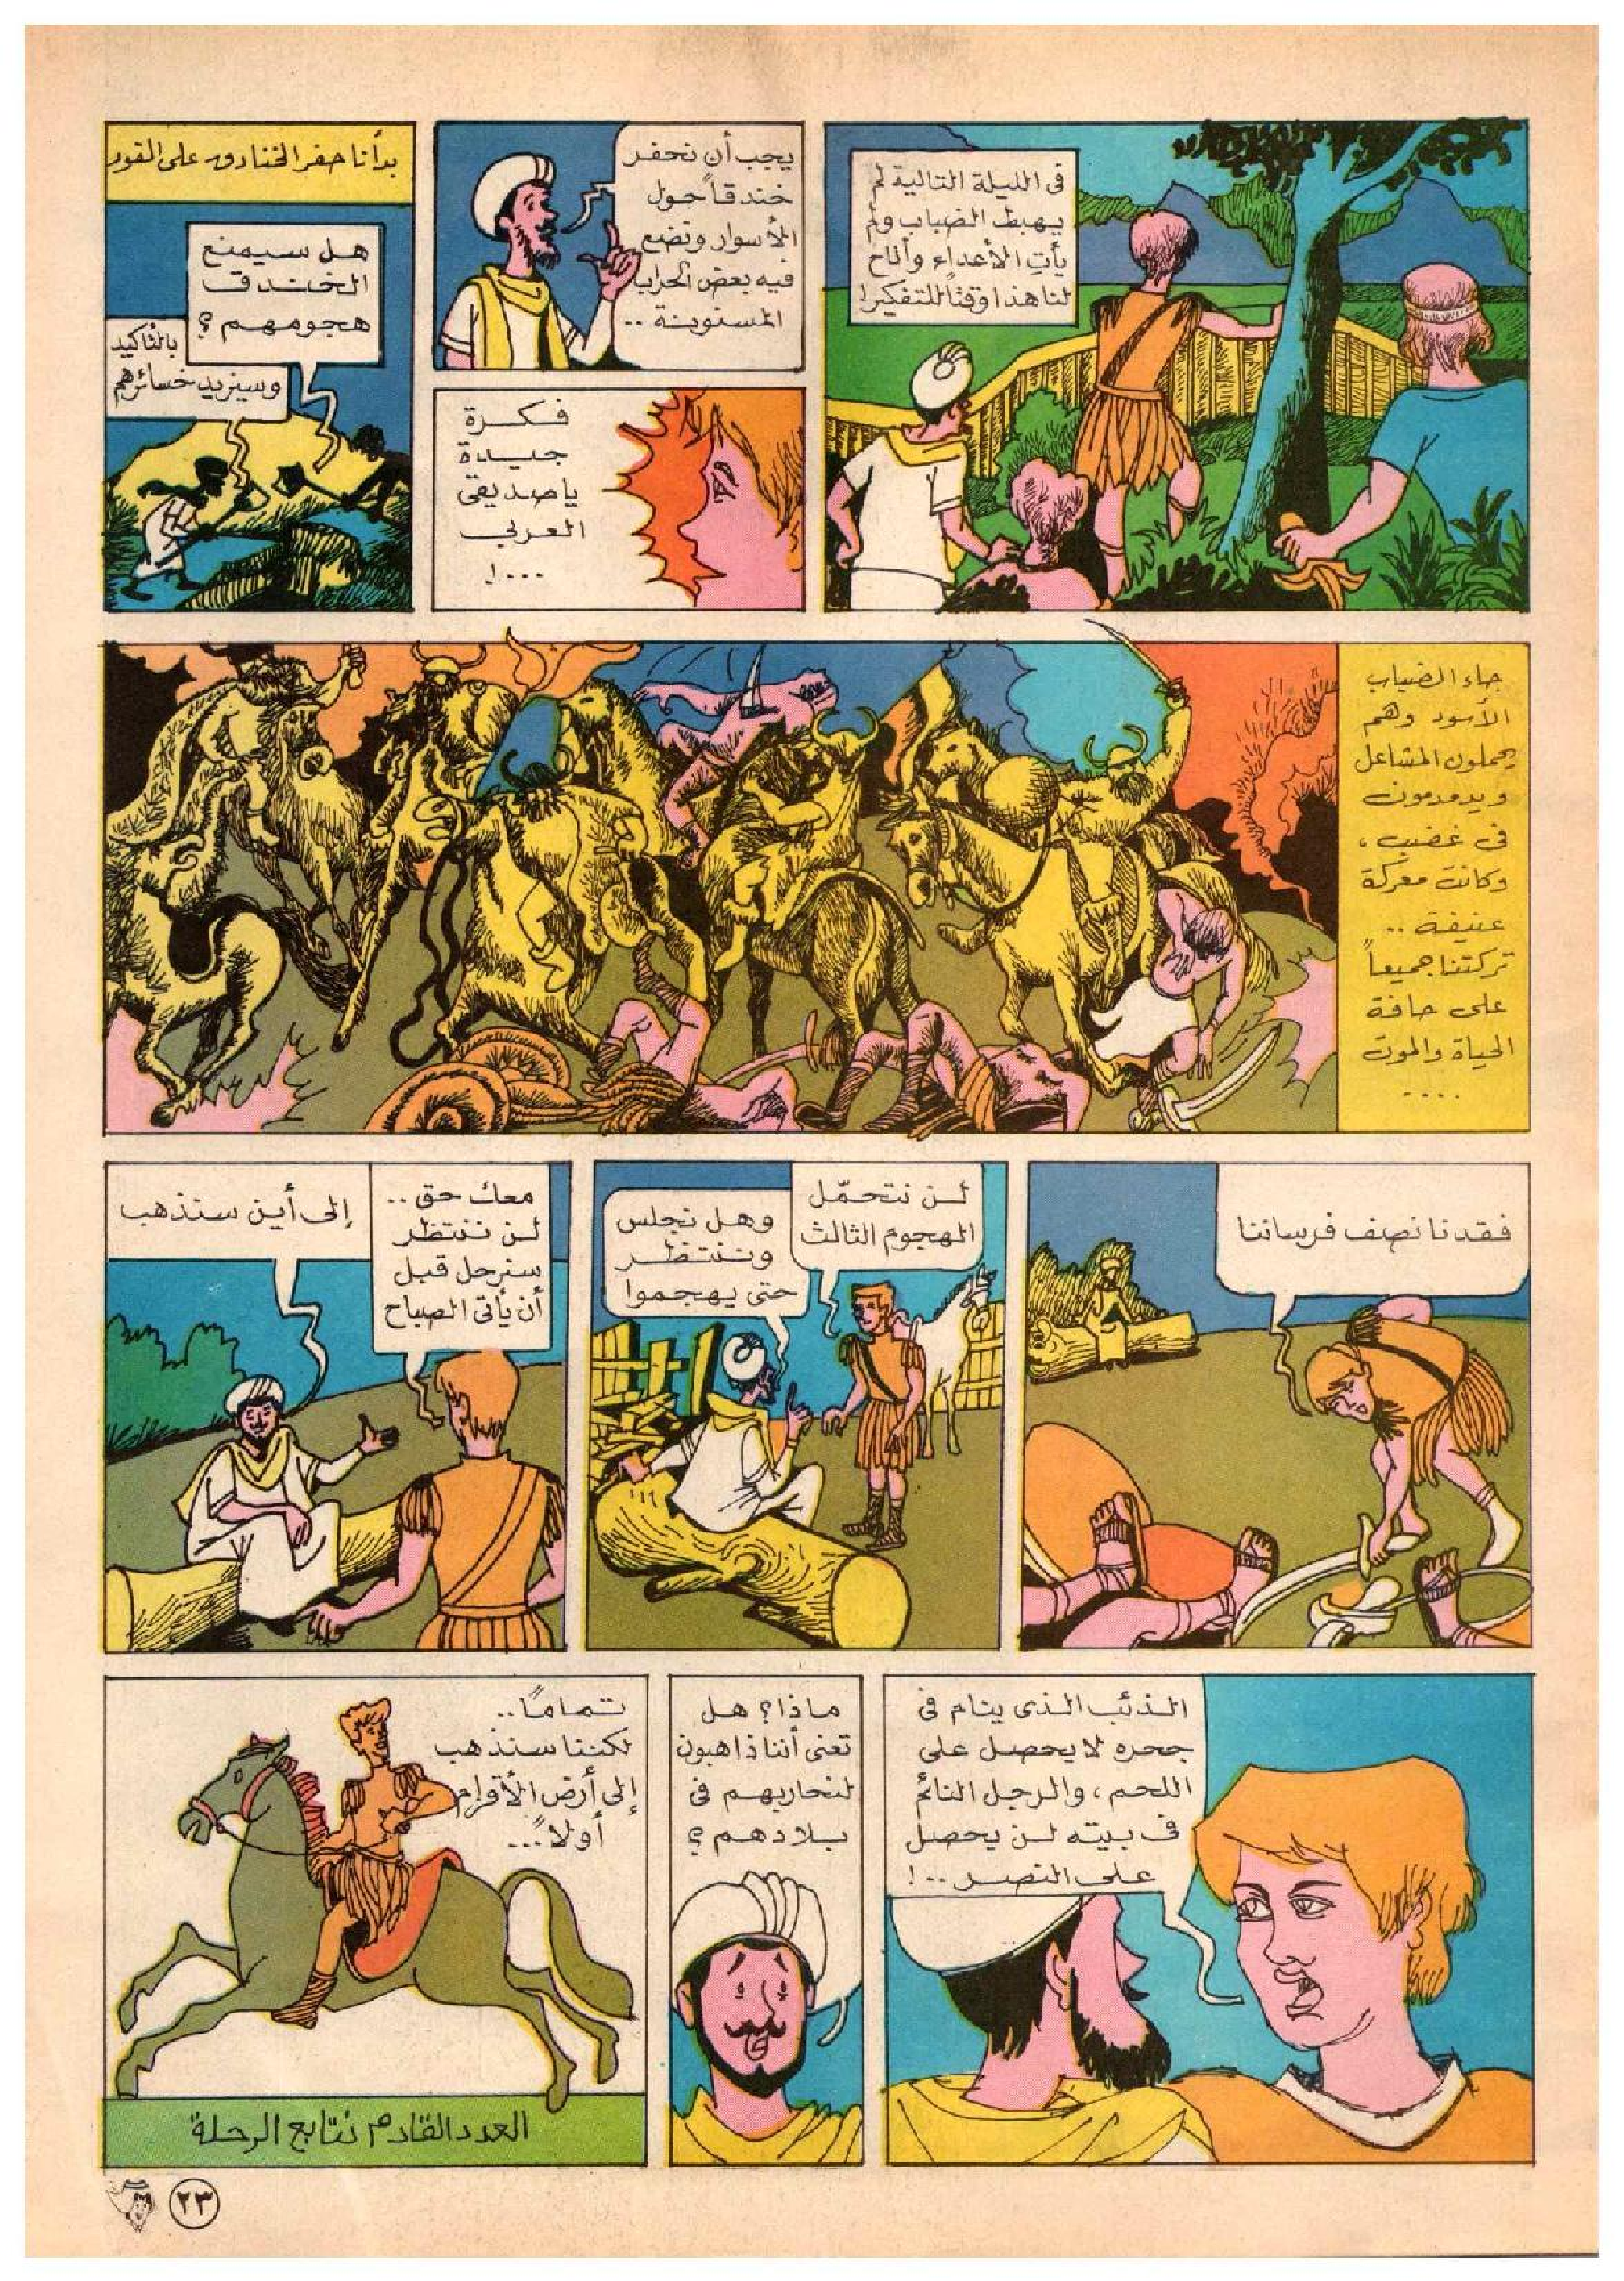 فى الليلة التالية لم
يهبط الضباب ولم
يأت الأعداء وأتاح
لنا هذا وقتاً للتفكير!
يجب أن نحفر
خندقاً حول
الأسوار ونضع
فيه بعض الحراب
المسنونة ..
فكرة
جيدة
ياصديقى
العربى
...!
بدأنا حفر الخنادق على الفور
هل سيمنع
الخندق
هجومهم؟
بالتأكيد
وسيزيد خسائرهم
جاء الضباب
الأسود وهم
يحملون المشاعل
ويدمدمون
فى غضب،
وكانت معركة
عنيفة ..
تركتنا جميعاً
على حافة
الحياة والموت
....
فقدنا نصف فرساننا
لن نتحمّل
الهجوم الثالث
وهل نجلس
وننتظر
حتى يهجموا
معك حق ..
لن ننتظر
سنرحل قبل
أن يأتى الصباح
إلى أين سنذهب
الذئب الذى ينام فى
جحره لا يحصل على
اللحم، والرجل النائم
فى بيته لن يحصل
على النصر ..!
ماذا؟ هل
تعنى أننا ذاهبون
لنحاربهم فى
بلادهم؟
تماماً..
لكننا سنذهب
إلى أرض الأقزام
أولاً...
العدد القادم نتابع الرحلة
٢٣